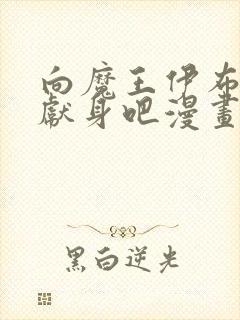 向魔王伊布
獻身吧漫畫
黑白逆光